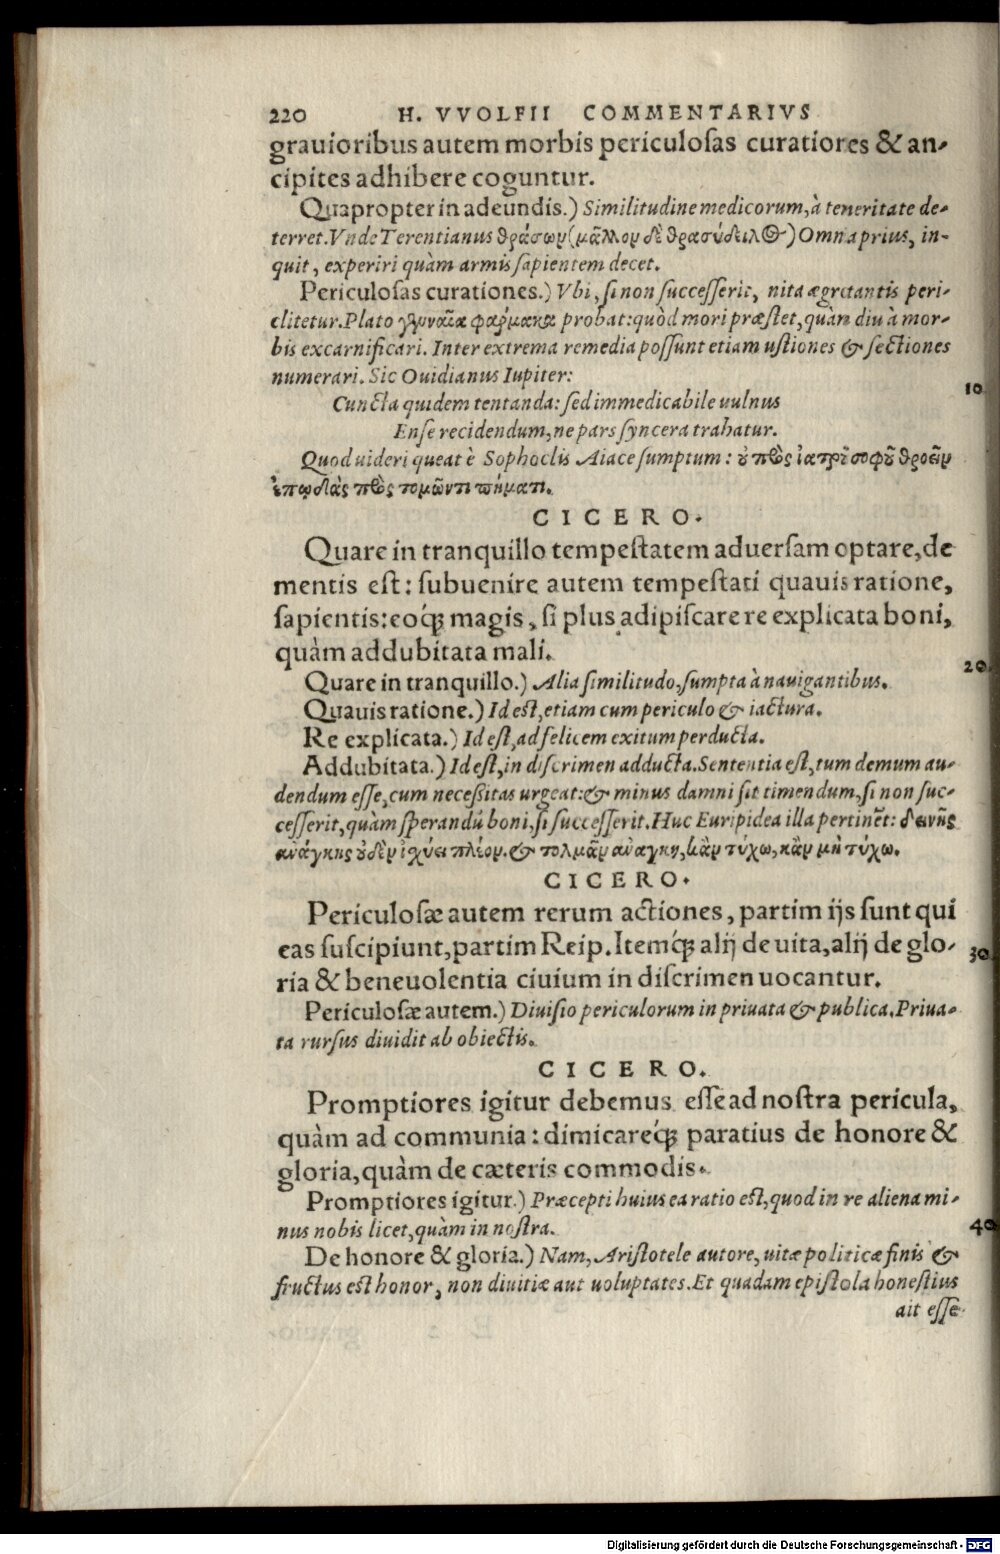 220 H. VVOLFII COMMENTARIVS
grauioribus autem morbis periculosas curatiores & an-
cipites adhibere coguntur.
Quapropter in adeundis.) Similitudine medicorum, à teneritate de-
terret. Vnde Terentianus θράσων (μᾶλλον δὲ θρασύδειλος) Omna prius, in-
quit, experiri quàm armis sapientem decet.
Periculosas curationes.) Vbi, si non successerit, uita ægrotantis peri-
clitetur. Plato γενναῖα φάρμακα probat: quòd mori præstet, quàm diu à mor-
bis excarnificari. Inter extrema remedia possunt etiam ustiones & sectiones
numerari. Sic Ouidianus Iupiter:
10
Cuncta quidem tentanda: sed immedicabile uulnus
Ense recidendum, ne pars syncera trahatur.
Quod uideri queat è Sophoclis Aiace sumptum: οὐ πρὸς ἰατροῦ σοφοῦ θροεῖν
ἐπῳδὰς πρὸς τομῶντι πήματι.
CICERO.
Quare in tranquillo tempestatem aduersam optare, de
mentis est: subuenire autem tempestati quauis ratione,
sapientis: eoq́; magis, si plus adipiscare re explicata boni,
quàm addubitata mali.
20
Quare in tranquillo.) Alia similitudo, sumpta à nauigantibus.
Quauis ratione.) Id est, etiam cum periculo & iactura.
Re explicata.) Id est, ad felicem exitum perducta.
Addubitata.) Id est, in discrimen adducta. Sententia est, tum demum au-
dendum esse, cum necessitas urgeat: & minus damni sit timendum, si non suc-
cesserit, quàm sperandũ boni, si successerit. Huc Euripidea illa pertinẽt: δεινῆς
ἀνάγκης οὐδὲν ἰσχύει πλέον. & τολμᾶν ἀνάγκη, κἂν τύχω, κἂν μὴ τύχω.
CICERO.
Periculosæ autem rerum actiones, partim ijs sunt qui
eas suscipiunt, partim Reip. Itemq́; alij de uita, alij de glo-
30
ria & beneuolentia ciuium in discrimen uocantur.
Periculosæ autem.) Diuisio periculorum in priuata & publica. Priua-
ta rursus diuidit ab obiectis.
CICERO.
Promptiores igitur debemus esse ad nostra pericula,
quàm ad communia: dimicareq́; paratius de honore &
gloria, quàm de cæteris commodis.
Promptiores igitur.) Præcepti huius ea ratio est, quod in re aliena mi-
nus nobis licet, quàm in nostra.
40
De honore & gloria.) Nam, Aristotele autore, uitæ politicæ finis &
fructus est honor, non diuitiæ aut uoluptates. Et quadam epistola honestius
ait esse
Digitalisierung gefördert durch die Deutsche Forschungsgemeinschaft - DFG